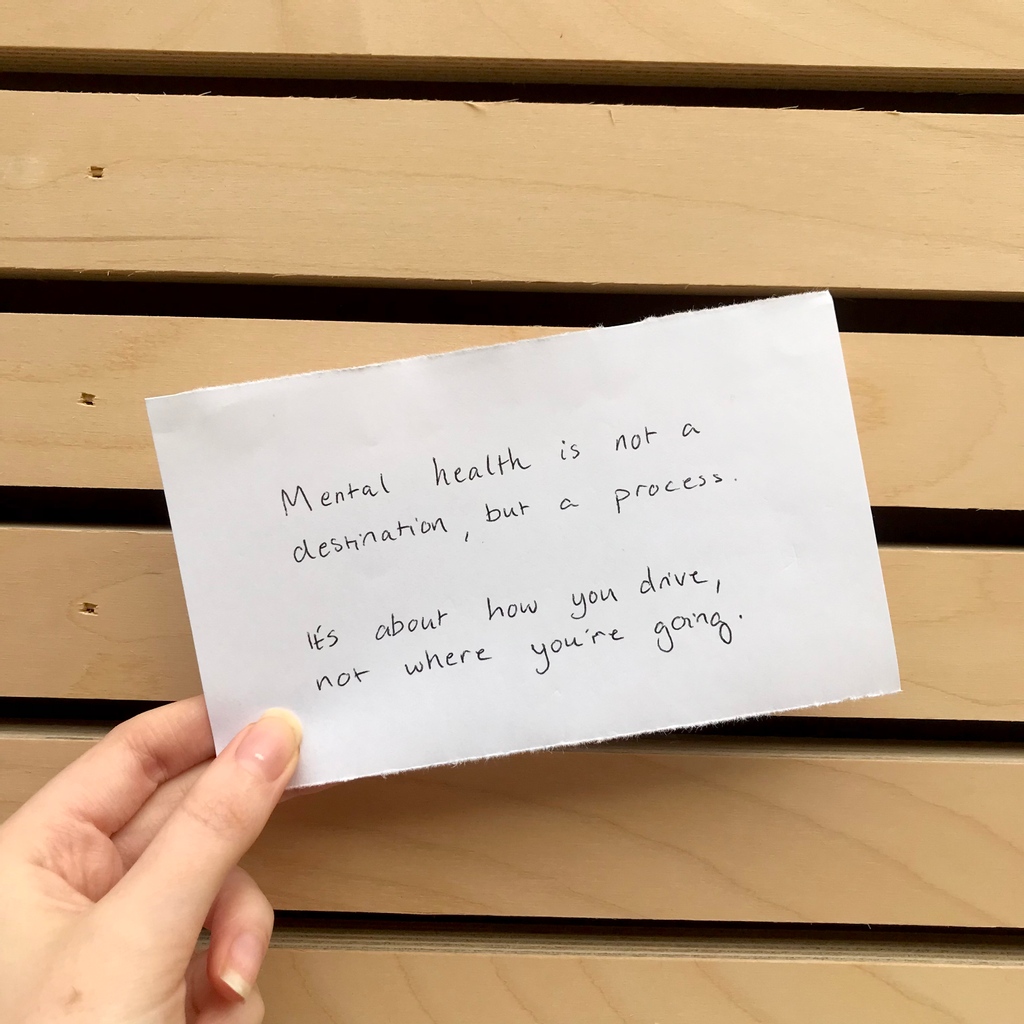 Mental health is not a
destination, but a process.
It's about how you drive,
not where you're going.